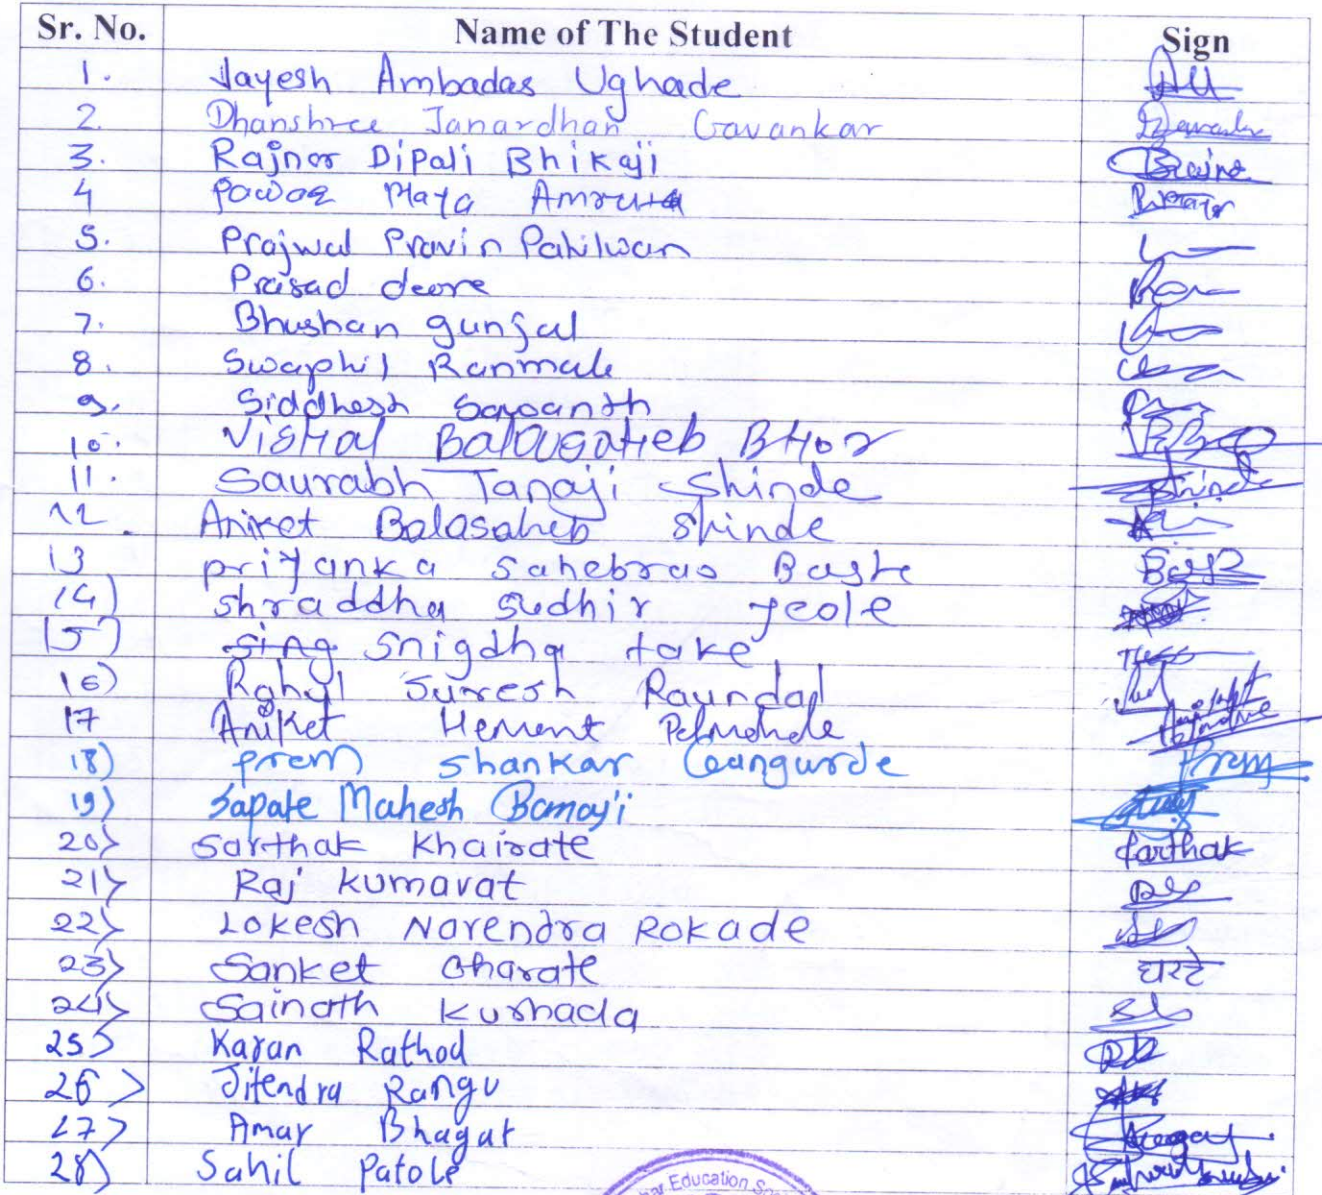 Sr. No. Name of The Student Sign
1. Jayesh Ambadas Ughade
2. Dhanshree Janardhan Gavankar
3. Rajnor Dipali Bhikaji
4 Pawar Maya Amruta
5. Prajwal Pravin Pahilwan
6. Prasad deore
7. Bhushan gunjal
8. Swapnil Ranmale
9. Siddhesh
10. Vishal Balasaheb Bhor
11. Saurabh Tanaji Shinde Shinde
12. Aniket Balasaheb Shinde
13 priyanka Sahebrao Baste
14) shraddha sudhir yeole
15) snigdha take
16) Rahul Suresh Raundal
17 Aniket Hement
18) prem shankar Gangurde Prem
19) Sapate Mahesh
20) Sarthak Khairate Sarthak
21) Raj kumavat
22) Lokesh Narendra Rokade
23) Sanket Gharate घरटे
24) Sainath kurhada
25) Karan Rathod
26) Jitendra Rangu
27) Amar Bhagat
28) Sahil Patole
Education